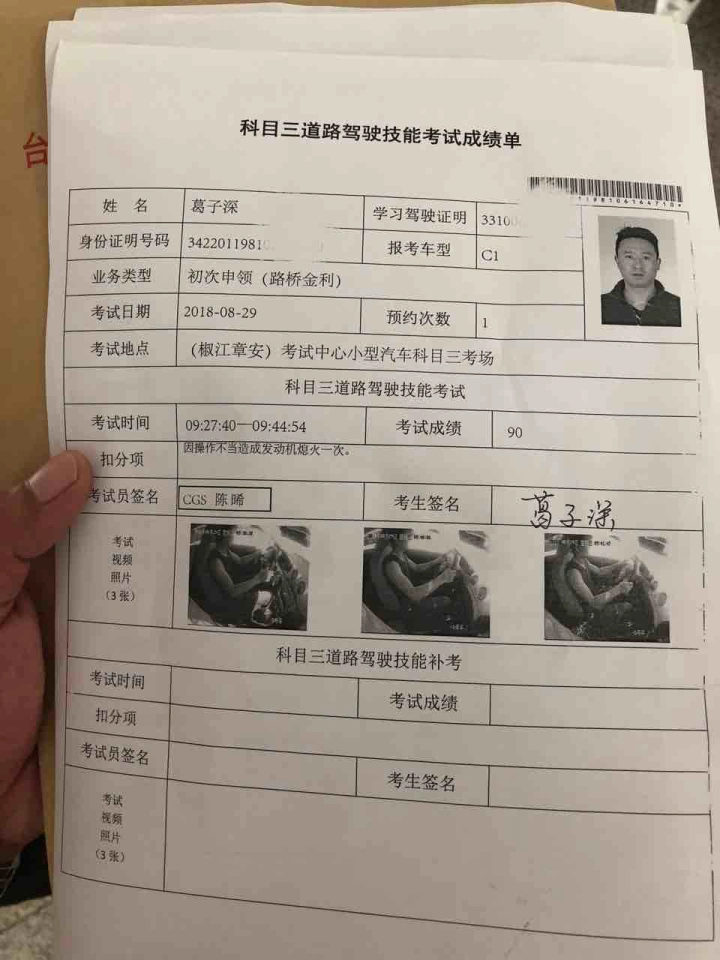 台
科目三道路驾驶技能考试成绩单
姓 名 葛子深 学习驾驶证明 33100
身份证明号码 3422011981 报考车型 C1
业务类型 初次申领（路桥金利）
考试日期 2018-08-29 预约次数 1
考试地点 （椒江章安）考试中心小型汽车科目三考场
科目三道路驾驶技能考试
考试时间 09:27:40—09:44:54 考试成绩 90
扣分项 因操作不当造成发动机熄火一次。
考试员签名 CGS 陈晞 考生签名 葛子深
考试
视频
照片
（3 张）
科目三道路驾驶技能补考
考试时间 考试成绩
扣分项
考试员签名 考生签名
考试
视频
照片
（3 张）